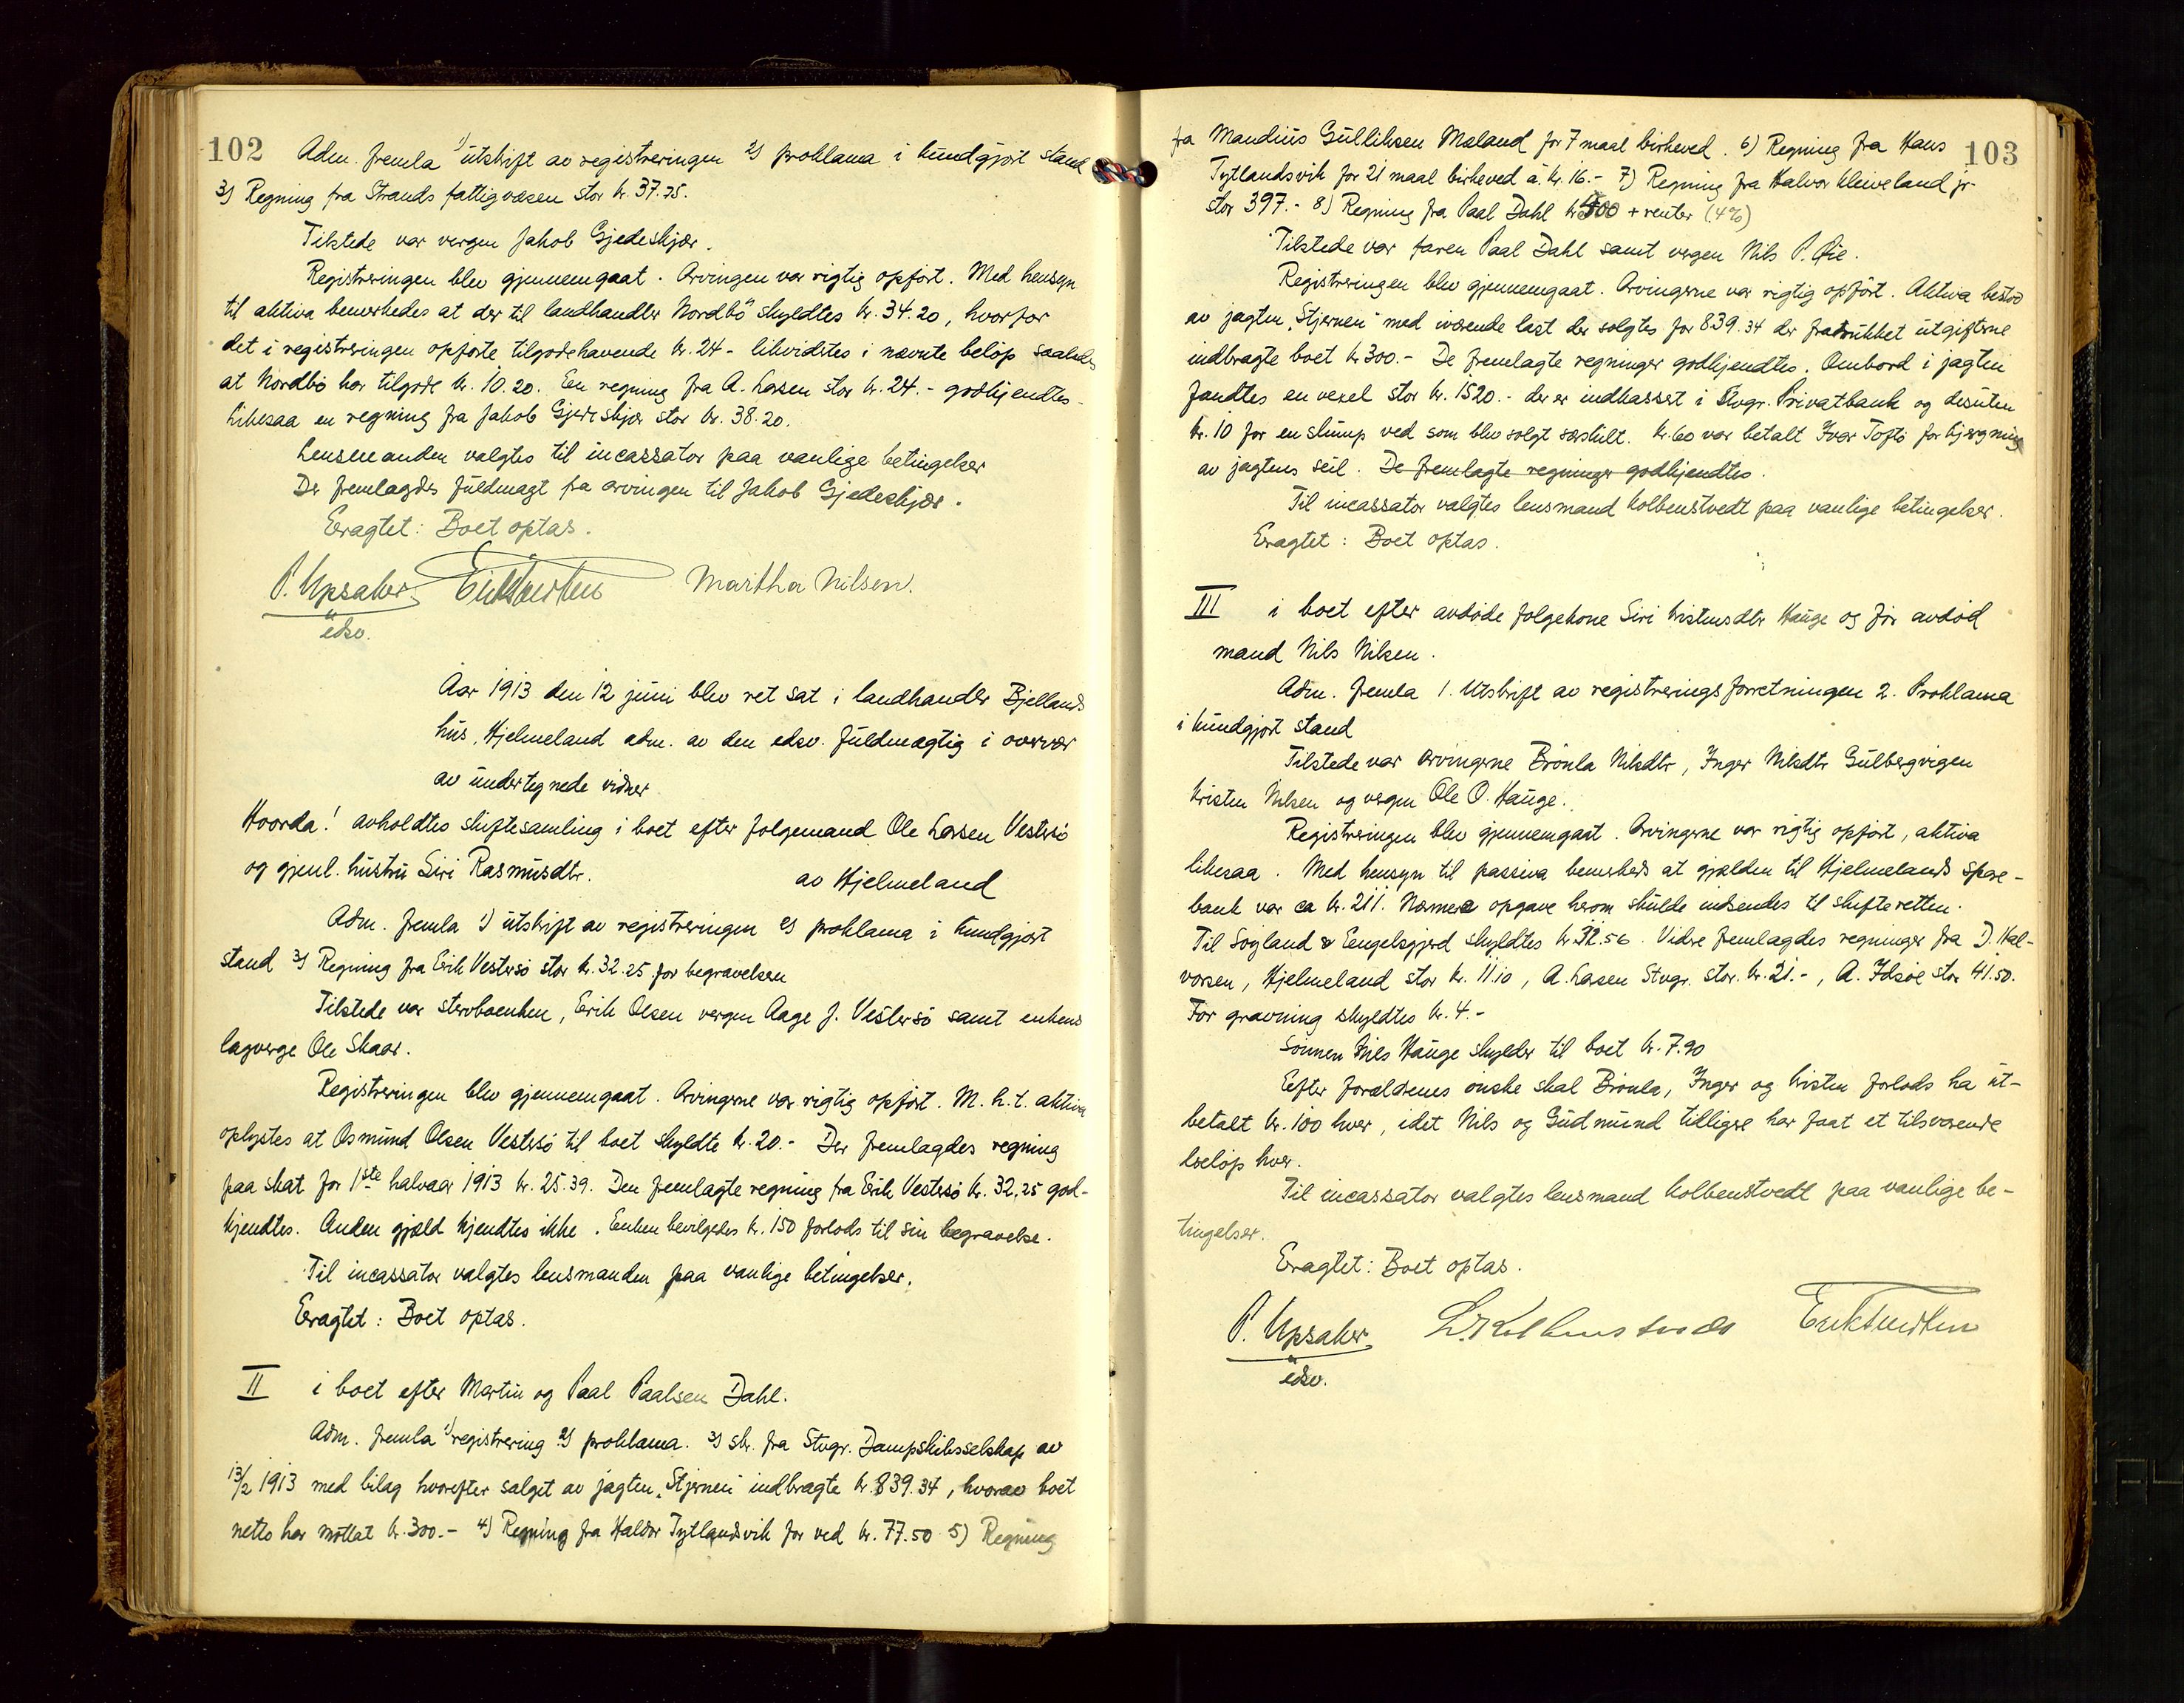 102
Adm. fremla 1) utskrift av registreringen 2) proklama i kundgjort stand
3) Regning fra Strands fattigvæsen stor kr. 37.75.
Tilstede var vergen Jakob Gjedeskjær.
Registreringen blev gjennemgaat. Arvingen var rigtig opført. Med hensyn
til aktiva bemerkedes at der til landhandler Nordbö skyldtes kr. 34.20, hvorfor
det i registreringen opførte tilgodehavende kr. 24.- likvidertes i nævnte beløp saaledes
at Nordbö har tilgode kr. 10.20. En regning fra A. Larsen stor kr. 24.- godkjendtes.
Likesaa en regning fra Jakob Gjedeskjær stor kr. 38.20.
Lensmanden valgtes til incassator paa vanlige betingelser
Der fremlagdes fuldmagt fra arvingen til Jakob Gjedeskjær.
Eragtet: Boet optas.
P. Upsaker Martha Nilsen.
edsv.
Aar 1913 den 12 juni blev ret sat i landhandler Bjellands
hus, Hjelmeland adm. av den edsv. fuldmægtig i overvær
av undertegnede vidner
Hvorda! avholdtes skiftesamling i boet efter folgemand Ole Larsen Vestersö
og gjenl. hustru Siri Rasmusdtr. av Hjelmeland
Adm. fremla 1) utskrift av registreringen 2) proklama i kundgjort
stand 3) Regning fra Erik Vestersö stor kr. 32.25 for begravelsen
Tilstede var stervboenken, Erik Olsen vergen Aage J. Vestersö samt enkens
lagverge Ole Skaar.
Registreringen blev gjennemgaat. Arvingerne var rigtig opført. M. h. t. aktiva
oplystes at Osmund Olsen Vestersö til boet skyldte kr. 20.- Der fremlagdes regning
paa skat for 1ste halvaar 1913 kr. 25.39. Den fremlagte regning fra Erik Vestersö kr. 32,25 god-
kjendtes. Anden gjæld kjendtes ikke. Enken bevilgedes kr. 150 forlods til sin begravelse.
Til incassator valgtes lensmanden paa vanlige betingelser.
Eragtet: Boet optas.
II i boet efter Martin og Paal Paalsen Dahl.
Adm. fremla 1) registrering 2) proklama. 3) skr. fra Stvgr. Dampskibsselskap av
13/2 1913 med bilag hvorefter salget av jagten „Stjernen" indbragte kr. 839.34, hvorav boet
netto har mottat kr. 300.- 4) Regning fra Haldor Tytlandsvik for ved kr. 77.50 5) Regning
103
fra Mandius Gulliksen Mæland for 7 maal birkeved. 6) Regning fra Hans
Tytlandsvik for 21 maal birkeved á kr. 16.- 7) Regning fra Halvor Kleiveland jr.
stor 397.- 8) Regning fra Paal Dahl kr. 500 + renter (4%)
Tilstede var faren Paal Dahl samt vergen Nils P. Øie.
Registreringen blev gjennemgaat. Arvingerne var rigtig opført. Aktiva bestod
av jagten „Stjernen" med iværende last der solgtes for 839.34 der fratrukket utgifterne
indbragte boet kr 300.- De fremlagte regninger godkjendtes. Ombord i jagten
fandtes en vexel stor kr. 1520.- der er indkasset i Stvgr. Privatbank og desuten
kr. 10 for en slump ved som blev solgt særskilt. Kr. 60 var betalt Ivar Toftö for bjergning
av jagtens seil. De fremlagte regninger godkjendtes.
Til incassator valgtes lensmand Kolbenstvedt paa vanlige betingelser.
Eragtet: Boet optas.
III i boet efter avdøde folgekone Siri Kristensdtr Hauge og før avdød
mand Nils Nilsen.
Adm. fremla 1. Utskrift av registreringsforretningen 2. Proklama
i kundgjort stand
Tilstede var arvingerne Brönla Nilsdtr, Inger Nilsdtr Gulbergvigen
Kristen Nilsen og vergen Ole O. Hauge.
Registreringen blev gjennemgaat. Arvingerne var rigtig opført, aktiva
likesaa. Med hensyn til passiva bemerkeds at gjælden til Hjelmelands Spare-
bank var ca kr. 211. Nærmere opgave herom skulde indsendes til skifteretten.
Til Söyland & Eengelsgjerd skyldtes kr. 32.56. Videre fremlagdes regninger fra D. Hal-
vorsen, Hjelmeland stor kr. 11.10, A. Larsen Stvgr. stor kr. 21.-, A. Idsöe stor 41.50.
For gravning skyldtes kr. 4.-
Sönnen Nils Hauge skylder til boet kr. 7.90
Eefter forældrenes önske skal Brönla, Inger og Kristen forlods ha ut-
betalt kr. 100 hver, idet Nils og Gudmund tidligere har faat et tilsvarende
beløp hver.
Til incassator valgtes lensmand Kolbenstvedt paa vanlige be-
tingelser.
Eragtet: Boet optas.
P. Upsaker
edsv.